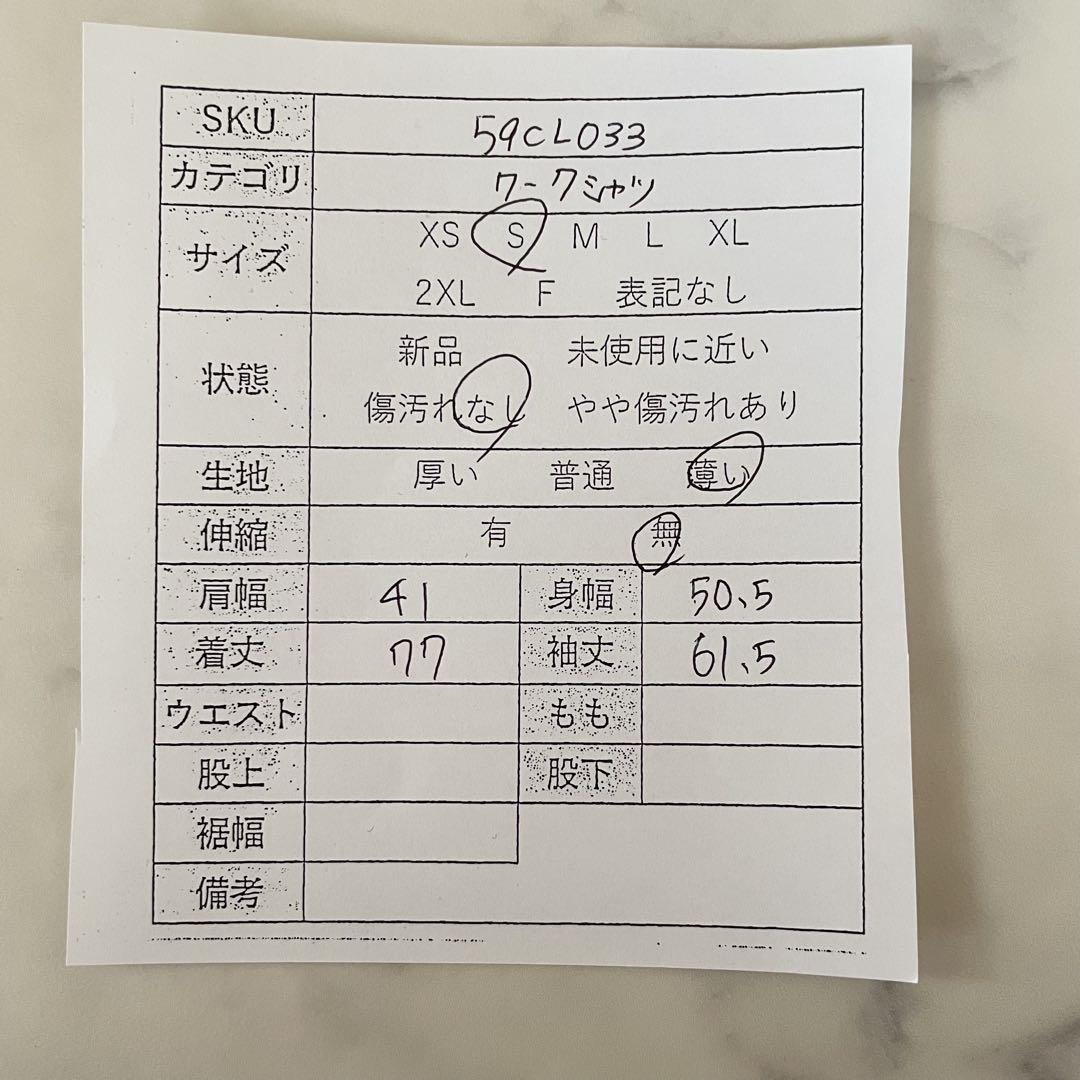 SKU 59CL033
カテゴリ ワークシャツ
サイズ XS S M L XL
2XL F 表記なし
状態 新品 未使用に近い
傷汚れなし やや傷汚れあり
生地 厚い 普通 薄い
伸縮 有 無
肩幅 41 身幅 50.5
着丈 77 袖丈 61.5
ウエスト もも
股上 股下
裾幅
備考